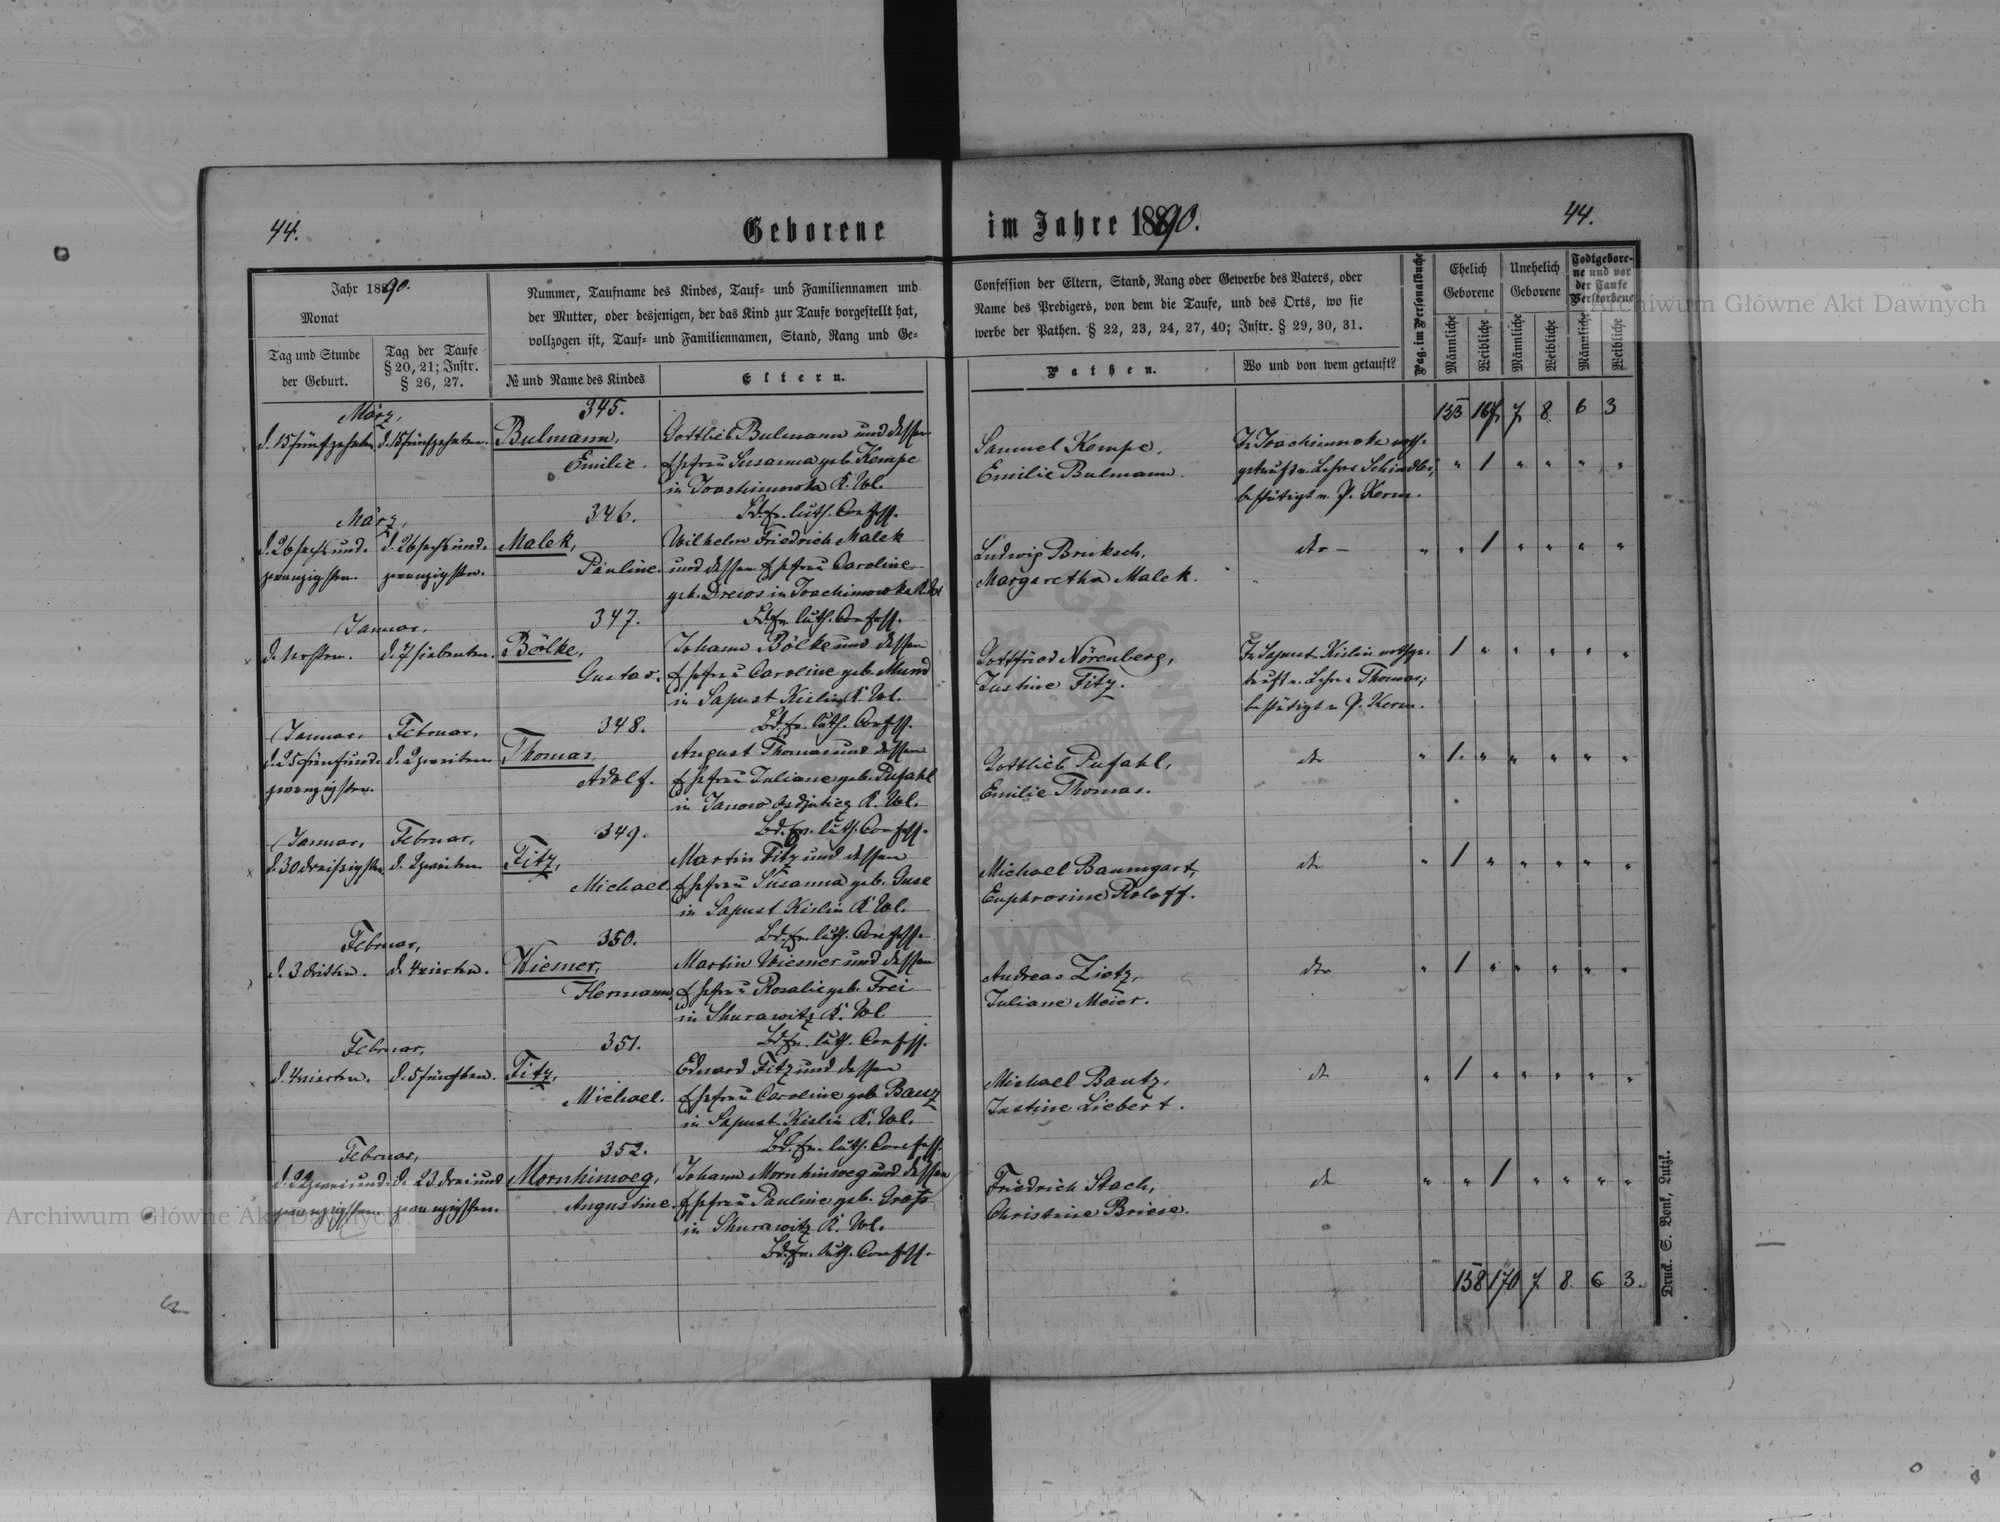 44.
Geborene
im Jahre 1890.
44.
Jahr 1890.
Monat
Tag und Stunde
der Geburt.
Tag der Taufe
§ 20, 21; Instr.
§ 26, 27.
Nummer, Taufname des Kindes, Tauf- und Familiennamen und
der Mutter, oder desjenigen, der das Kind zur Taufe vorgestellt hat,
vollzogen ist, Tauf- und Familiennamen, Stand, Rang und Ge-
№ und Name des Kindes
Eltern.
Confession der Eltern, Stand, Rang oder Gewerbe des Vaters, oder
Name des Predigers, von dem die Taufe, und des Orts, wo sie
werbe der Pathen. § 22, 23, 24, 27, 40; Instr. § 29, 30, 31.
Pathen.
Wo und von wem getauft?
Pag. im Personalbuche
Ehelich
Geborene
Unehelich
Geborene
Todtgebore-
ne und vor
der Taufe
Verstorbene
Männliche
Weibliche
Männliche
Weibliche
Männliche
Weibliche
153 167 7 8 6 3
März,
d. 15 fünfzehnten
d. 15 fünfzehnten.
345.
Bulmann,
Emilie.
Gottlieb Bulmann und dessen
Ehefrau Susanna geb. Kempe
in Joachimowka K. Wol.
Bd. Ev. luth. Confess.
Samuel Kempe,
Emilie Bulmann.
In Joachimowka noth-
getauft v. Lehrer Schindler;
bestätigt v. P. Kerm.
" 1 " " " "
März,
d. 26 sechsund-
zwanzigsten.
d. 26 sechsund-
zwanzigsten.
346.
Malek,
Pauline.
Wilhelm Friedrich Malek
und dessen Ehefrau Caroline
geb. Drews in Joachimowka K. Wol
Bd. Ev. luth. Confess.
Ludwig Bruksch,
Margaretha Malek.
dto –
" " 1 " " " "
Januar,
d. 1 ersten.
d. 7 siebenten.
347.
Bölke,
Gustav.
Johann Bölke und dessen
Ehefrau Caroline geb. Mund
in Sapust Kislin K. Wol.
Bd. Ev. luth. Confess.
Gottfried Nörenberg,
Justine Fitz.
In Sapust Kislin nothge-
tauft v. Lehrer Thomas;
bestätigt v. P. Kerm.
1 " " " " "
Januar,
d. 25 fünfund-
zwanzigsten.
Februar,
d. 2 zweiten
348.
Thomas,
Adolf.
August Thomas und dessen
Ehefrau Juliane geb. Pufahl
in Janow K. Wol.
Bd. Ev. luth. Confess.
Gottlieb Pufahl,
Emilie Thomas.
dto
" 1 " " " " "
Januar,
d. 30 dreissigsten
Februar,
d. 2 zweiten
349.
Fitz,
Michael.
Martin Fitz und dessen
Ehefrau Susanna geb. Guse
in Sapust Kislin K. Wol.
Bd. Ev. luth. Confess.
Michael Baumgart,
Euphrosine Roloff.
dto
" 1 " " " " "
Februar,
d. 3 dritten.
d. 4 vierten.
350.
Wiesner,
Hermann.
Martin Wiesner und dessen
Ehefrau Rosalie geb. Frei
in Shurawitz K. Wol
Bd. Ev. luth. Confess.
Andreas Zietz,
Juliane Meier.
dto
" 1 " " " " "
Februar,
d. 4 vierten.
d. 5 fünften.
351.
Fitz,
Michael.
Eduard Fitz und dessen
Ehefrau Caroline geb. Bauz
in Sapust Kislin K. Wol.
Bd. Ev. luth. Confess.
Michael Bautz,
Justine Liebert.
dto
" 1 " " " " "
Februar,
d. 22 zweiund-
zwanzigsten.
d. 23 dreiund
zwanzigsten.
352.
Mornhinweg,
Augustine.
Johann Mornhinweg und dessen
Ehefrau Pauline geb. Gross
in Shurawitz K. Wol.
Bd. Ev. luth. Confess.
Friedrich Stach,
Christine Briese.
dto
" " 1 " " " "
158 170 7 8 6 3.
Druck. S. Bonk, Lutzk.
Archiwum Główne Akt Dawnych
Archiwum Główne Akt Dawnych